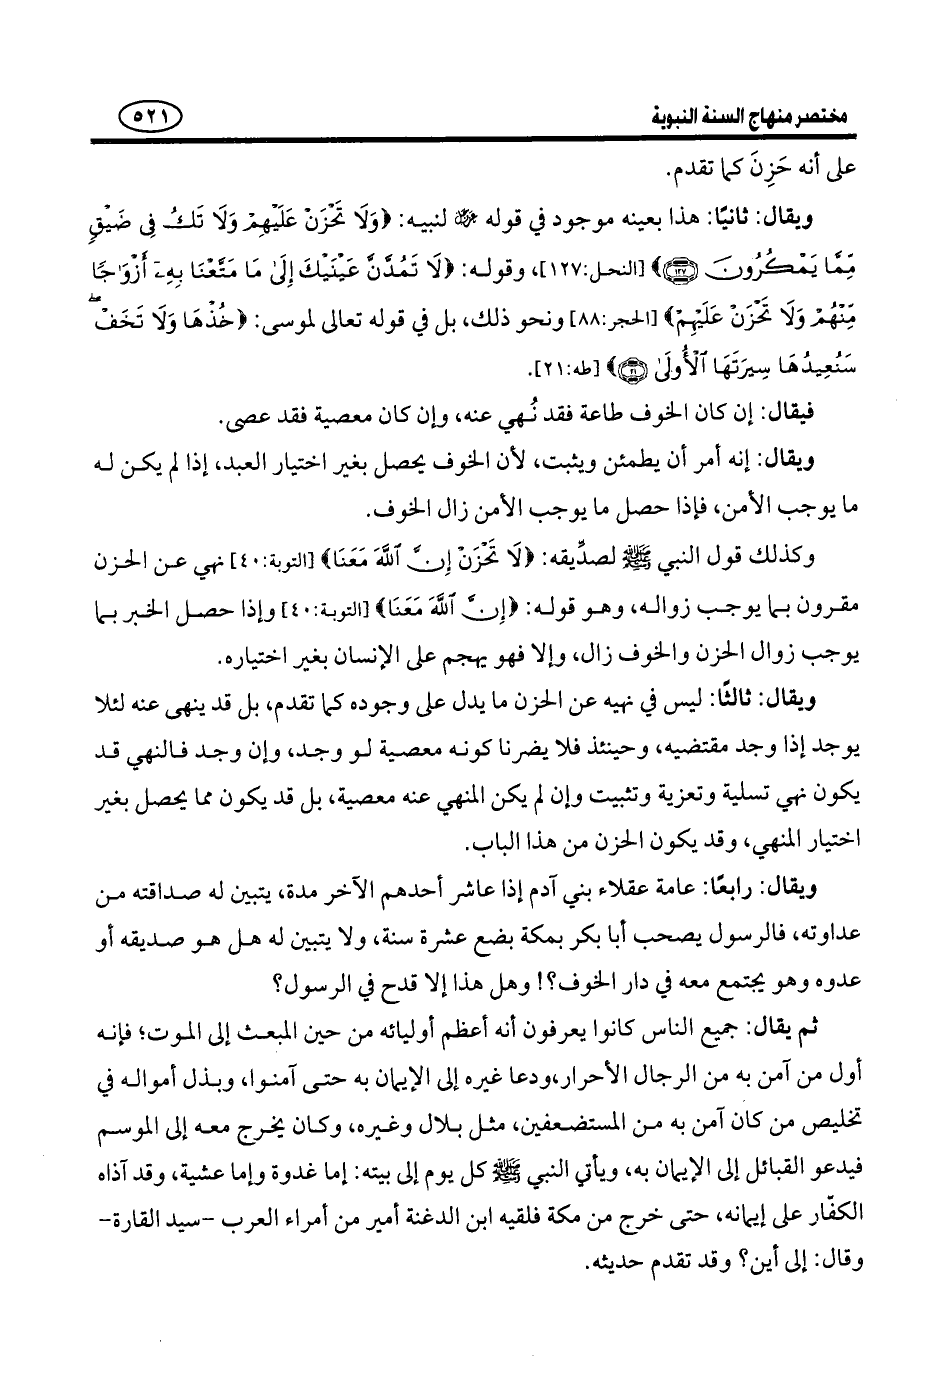 مختصر منهاج السنة النبوية ٥٢١
على أنه حَزِنَ كما تقدم.
ويقال: ثانيًا: هذا بعينه موجود في قوله ﷻ لنبيه: ﴿وَلَا تَحْزَنْ عَلَيْهِمْ وَلَا تَكُ فِى ضَيْقٍ
مِّمَّا يَمْكُرُونَ ﴿١٢٧﴾﴾ [النحل:١٢٧]، وقوله: ﴿لَا تَمُدَّنَّ عَيْنَيْكَ إِلَىٰ مَا مَتَّعْنَا بِهِۦٓ أَزْوَٰجًا
مِّنْهُمْ وَلَا تَحْزَنْ عَلَيْهِمْ﴾ [الحجر:٨٨] ونحو ذلك، بل في قوله تعالى لموسى: ﴿خُذْهَا وَلَا تَخَفْ ۖ
سَنُعِيدُهَا سِيرَتَهَا ٱلْأُولَىٰ ﴿٢١﴾﴾ [طه:٢١].
فيقال: إن كان الخوف طاعة فقد نُهي عنه، وإن كان معصية فقد عصى.
ويقال: إنه أمر أن يطمئن ويثبت، لأن الخوف يحصل بغير اختيار العبد، إذا لم يكن له
ما يوجب الأمن، فإذا حصل ما يوجب الأمن زال الخوف.
وكذلك قول النبي ﷺ لصدِّيقه: ﴿لَا تَحْزَنْ إِنَّ ٱللَّهَ مَعَنَا﴾ [التوبة:٤٠] نهي عن الحزن
مقرون بما يوجب زواله، وهو قوله: ﴿إِنَّ ٱللَّهَ مَعَنَا﴾ [التوبة:٤٠] وإذا حصل الخبر بما
يوجب زوال الحزن والخوف زال، وإلا فهو يهجم على الإنسان بغير اختياره.
ويقال: ثالثًا: ليس في نهيه عن الحزن ما يدل على وجوده كما تقدم، بل قد ينهى عنه لئلا
يوجد إذا وجد مقتضيه، وحينئذ فلا يضرنا كونه معصية لو وجد، وإن وجد فالنهي قد
يكون نهي تسلية وتعزية وتثبيت وإن لم يكن المنهي عنه معصية، بل قد يكون مما يحصل بغير
اختيار المنهي، وقد يكون الحزن من هذا الباب.
ويقال: رابعًا: عامة عقلاء بني آدم إذا عاشر أحدهم الآخر مدة، يتبين له صداقته من
عداوته، فالرسول يصحب أبا بكر بمكة بضع عشرة سنة، ولا يتبين له هل هو صديقه أو
عدوه وهو يجتمع معه في دار الخوف؟! وهل هذا إلا قدح في الرسول؟
ثم يقال: جميع الناس كانوا يعرفون أنه أعظم أوليائه من حين المبعث إلى الموت؛ فإنه
أول من آمن به من الرجال الأحرار،ودعا غيره إلى الإيمان به حتى آمنوا، وبذل أمواله في
تخليص من كان آمن به من المستضعفين، مثل بلال وغيره، وكان يخرج معه إلى الموسم
فيدعو القبائل إلى الإيمان به، ويأتي النبي ﷺ كل يوم إلى بيته: إما غدوة وإما عشية، وقد آذاه
الكفّار على إيمانه، حتى خرج من مكة فلقيه ابن الدغنة أمير من أمراء العرب -سيد القارة-
وقال: إلى أين؟ وقد تقدم حديثه.